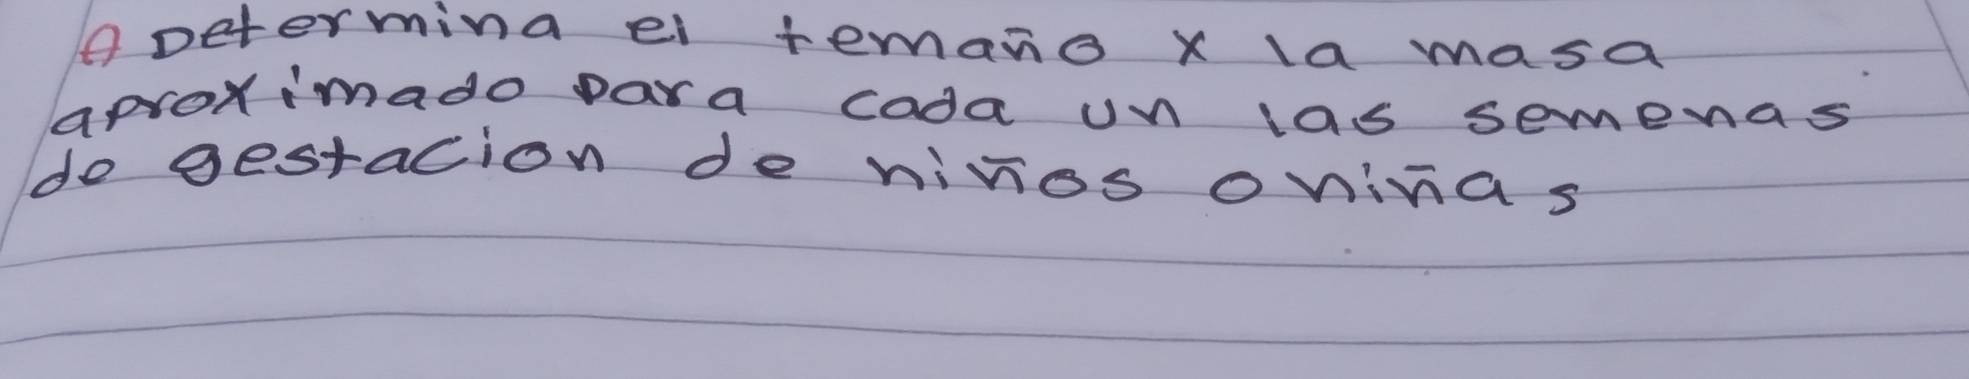 A Determina el temaño x la masa
aproximado para cada un las semenas
de gestacion de niños o niñas